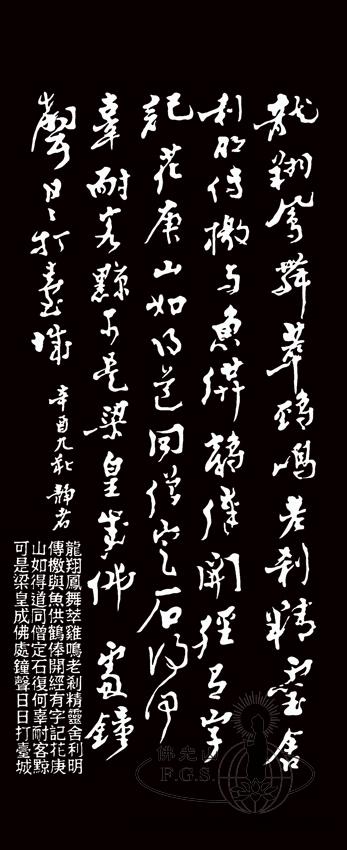 龍翔鳳舞萃鷄鳴老剎精靈舍
利明傳檄与魚供鶴俸開經有字
記花庚山如得道同僧定石復何
辜耐客黥可是梁皇成佛處鐘
聲日〻打臺城
辛酉九秋 靜者
龍翔鳳舞萃雞鳴老剎精靈舍利明
傳檄與魚供鶴俸開經有字記花庚
山如得道同僧定石復何辜耐客黥
可是梁皇成佛處鐘聲日日打臺城
佛光山
F.G.S.